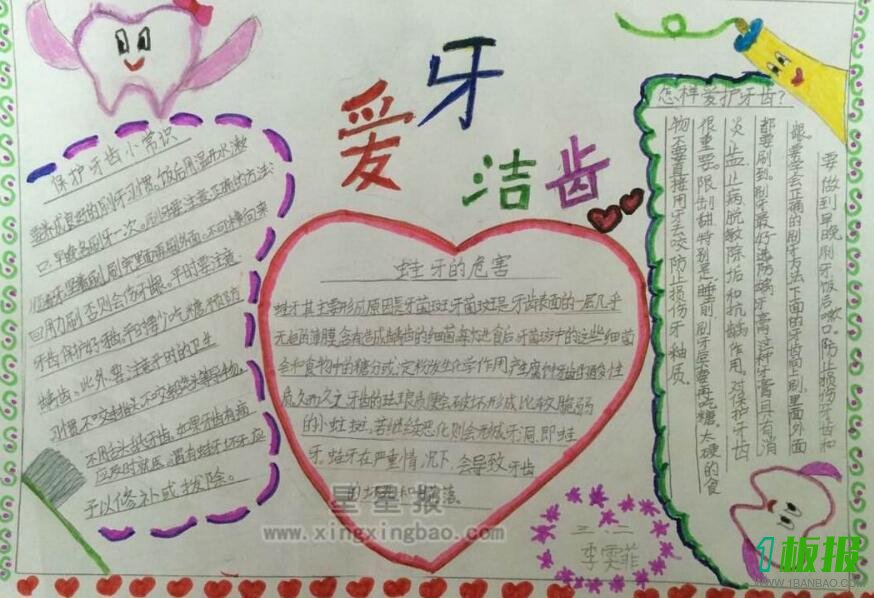 爱牙
洁齿
保护牙齿小常识
要养成良好的刷牙习惯。饭后用温开水漱
口,早晚各刷牙一次。刷牙要注意正确的方法:
刷完里面再刷外面。不可横向来
回用力刷,否则会伤牙龈。平时要注意
牙齿保护好牙齿。平时要少吃糖预防
龋齿。此外,要注意平时的卫生
习惯不咬指头不咬铅笔头等异物。
不用舌头舔牙齿。如果牙齿有病
应及时就医。遇有蛀牙坏牙应
予以修补或拔除。
蛀牙的危害
蛀牙其主要形成原因是牙菌斑。牙菌斑是牙齿表面的一层几乎
无色的薄膜,含有造成龋齿的细菌。每次进食后,牙菌斑中的这些细菌
会和食物中的糖分或淀粉发生化学作用,产生腐蚀牙齿的酸性
质,久而久之,牙齿的珐琅质便会被破坏形成比较脆弱
的小蛀斑。若继续恶化则会形成牙洞,即蛀
牙。蛀牙在严重情况下,会导致牙齿
的坏死和脱落。
怎样爱护牙齿?
要做到早晚刷牙饭后嗽口。防止损伤牙齿和
龈。要学会正确的刷牙方法,下面的牙齿向上刷,里面外面
都要刷到。刷牙最好选防龋牙膏,这种牙膏具有消
炎、止血、止病、脱敏、除垢和抗龋作用。对保护牙齿
很重要。限制甜,特别是睡前刷牙后不要再吃糖。太硬的食
物不要直接用牙去咬,防止损伤牙釉质。
二、二
李雯菲
星星报
www.xingxingbao.com
1板报
WWW.1BANBAO.COM